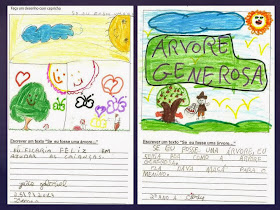 Faça um desenho que capriche
SE EU FOSSE UMA
Escrever um texto "Se eu fosse uma árvore..."
EU FICARIA FELIZ EM
AJUDAR AS CRIANÇAS.
ÁRVORE
GENEROSA
Escrever um texto "Se eu fosse uma árvore..."
SE EU FOSSE UMA ÁRVORE, EU
SERIA COMO A ÁRVORE
GENEROSA.
ELA DAVA MAÇÃ PARA O
MENINO.
2º ANO A